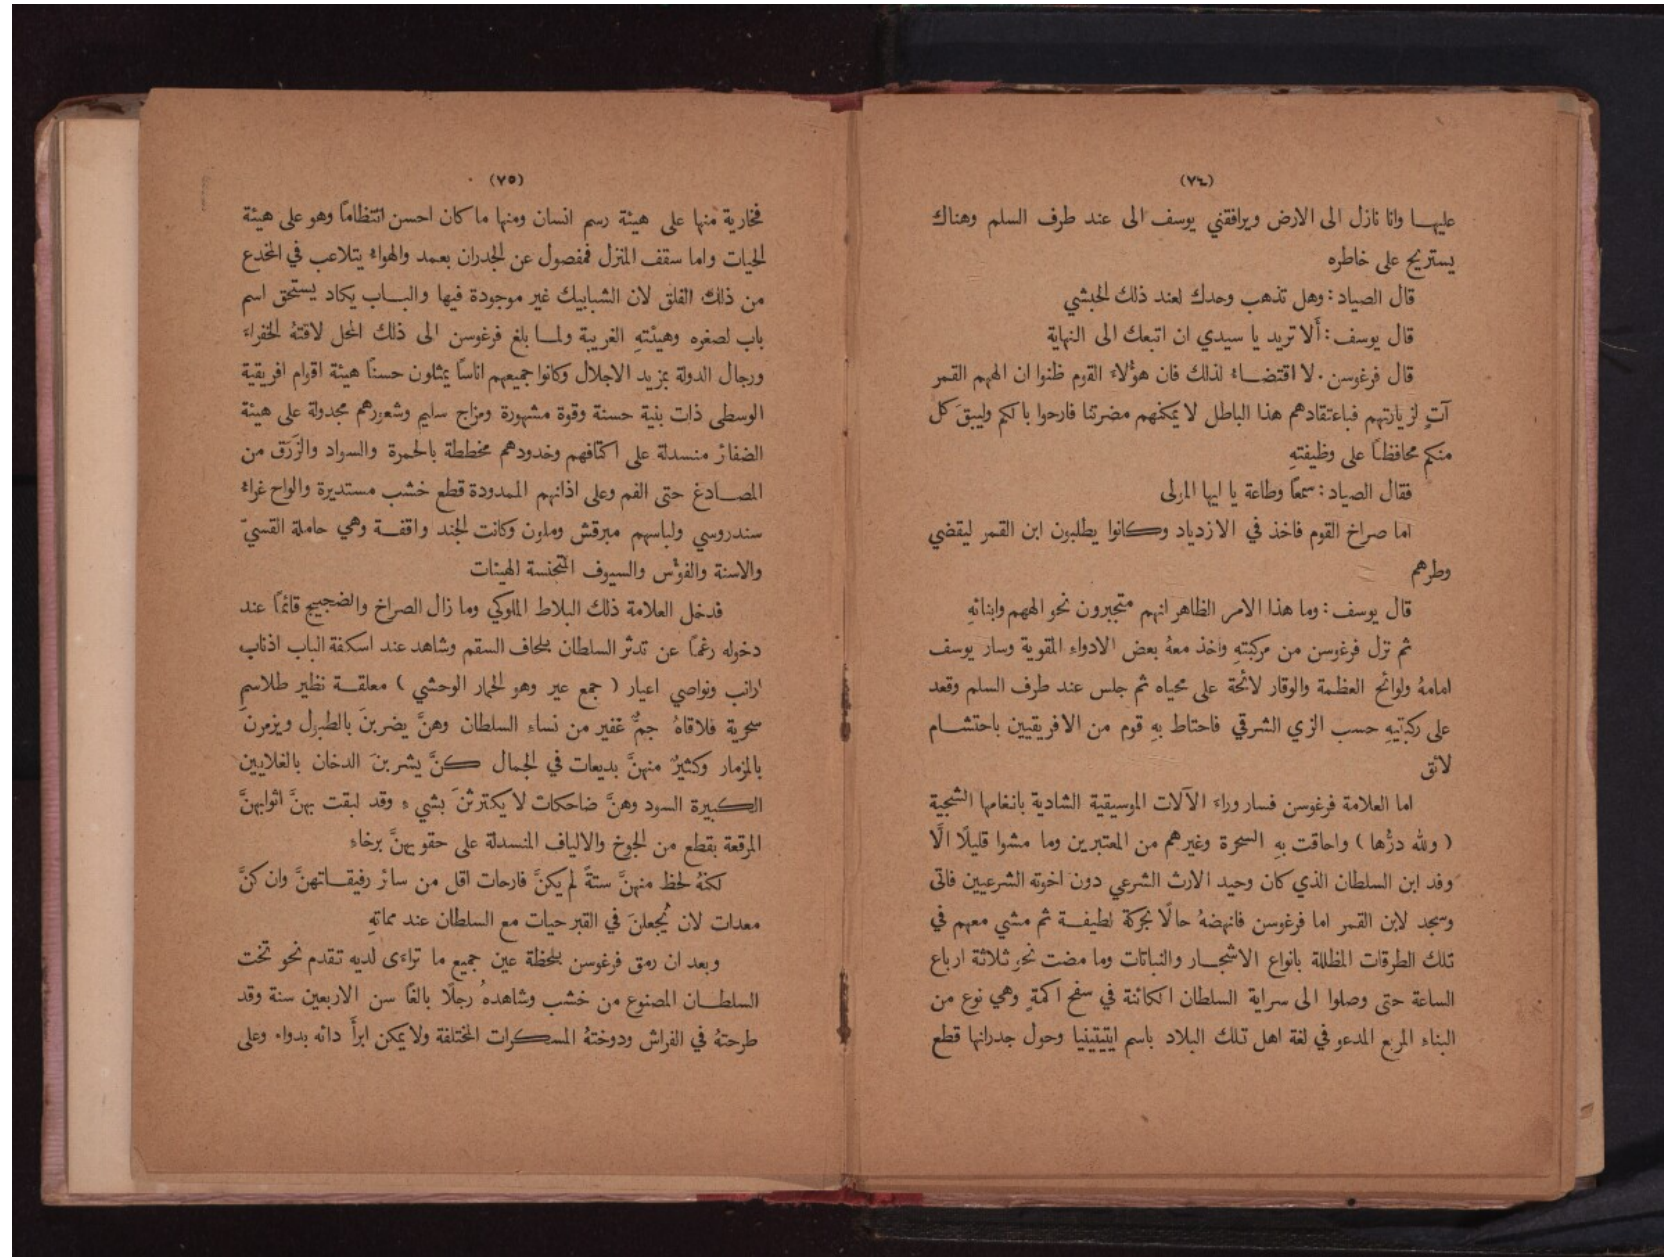 (٧٤)
عليها وانا نازل الى الارض ويرافقني يوسف الى عند طرف السلم وهناك
يستريح على خاطره
قال الصياد : وهل تذهب وحدك لعند ذلك الحبشي
قال يوسف : ألا تريد يا سيدي ان اتبعك الى النهاية
قال فرغوسن . لا اقتضاء لذلك فان هؤلاء القوم ظنوا ان الههم القمر
آتٍ لزيارتهم فباعتقادهم هذا الباطل لا يمكنهم مضرتنا فارحوا بالكم وليبقَ كل
منكم محافظاً على وظيفتهِ
فقال الصياد : سمعاً وطاعة يا ايها المولى
اما صراخ القوم فاخذ في الازدياد وكانوا يطلبون ابن القمر ليقضي
وطرهم
قال يوسف : وما هذا الامر الظاهر انهم متجبرون نحو الههم وابنائهِ
ثم نزل فرغوسن من مركبتهِ واخذ معهُ بعض الادواء المقوية وسار يوسف
امامهُ ولوائح العظمة والوقار لائحة على محياه ثم جلس عند طرف السلم وقعد
على ركبتيهِ حسب الزي الشرقي فاحتاط بهِ قوم من الافريقيين باحتشام
لائق
اما العلامة فرغوسن فسار وراء الآلات الموسيقية الشادية بانغامها الشجية
( ولله درُّها ) واحاقت بهِ السحرة وغيرهم من المعتبرين وما مشوا قليلًا الَّا
وفد ابن السلطان الذي كان وحيد الارث الشرعي دون اخوته الشرعيين فاتى
وسجد لابن القمر اما فرغوسن فانهضهُ حالًا بحركة لطيفة ثم مشي معهم في
تلك الطرقات المظللة بانواع الاشجار والنباتات وما مضت نحو ثلاثة ارباع
الساعة حتى وصلوا الى سراية السلطان الكائنة في سفح اكمةٍ وهي نوع من
البناء المربع المدعو في لغة اهل تلك البلاد باسم ايتيتينيا وحول جدرانها قطع
(٧٥)
فخارية منها على هيئة رسم انسان ومنها ما كان احسن انتظاماً وهو على هيئة
الحيات واما سقف المنزل فمفصول عن الجدران بعمد والهواء يتلاعب في المخدع
من ذلك الفلق لان الشبابيك غير موجودة فيها والباب يكاد يستحق اسم
باب لصغره وهيئتهِ الغريبة ولما بلغ فرغوسن الى ذلك المحل لاقتهُ الخفراء
ورجال الدولة بمزيد الاجلال وكانوا جميعهم اناساً يمثلون حسناً هيئة اقوام افريقية
الوسطى ذات بنية حسنة وقوة مشهورة ومزاج سليم وشعورهم مجدولة على هيئة
الضفائر منسدلة على اكتافهم وخدودهم مخططة بالحمرة والسواد والزَرَق من
المصادغ حتى الفم وعلى اذانهم الممدودة قطع خشب مستديرة والواح غراء
سندروسي ولباسهم مبرقش وملون وكانت الجند واقفة وهي حاملة القسيّ
والاسنة والفوُّس والسيوف المتجنسة الهيئات
فدخل العلامة ذلك البلاط الملوكي وما زال الصراخ والضجيج قائمًا عند
دخوله رغمًا عن تدثر السلطان بلحاف السقم وشاهد عند اسكفة الباب اذناب
ارانب ونواصي اعيار ( جمع عير وهو الحمار الوحشي ) معلقة نظير طلاسمٍ
سحرية فلاقاهُ جمٌّ غفير من نساءِ السلطان وهنَّ يضربنَ بالطبول ويزمرنَ
بالمزمار وكثيرٌ منهنَّ بديعات في الجمال كنَّ يشربنَ الدخان بالغلايين
الكبيرة السود وهنَّ ضاحكات لا يكترثنَ بشيءٍ وقد لبقت بهنَّ اثوابهنَّ
المرقعة بقطع من الجوخ والالياف المنسدلة على حقويهنَّ برخاءٍ
لكنهُ لحظ منهنَّ ستةً لم يكنَّ فارحات اقل من سائر رفيقاتهنَّ وان كنَّ
معدات لان يُجعلنَ في القبر حيات مع السلطان عند مماتهِ
وبعد ان رمق فرغوسن بلحظة عين جميع ما تراءى لديه تقدم نحو تخت
السلطان المصنوع من خشب وشاهدهُ رجلًا بالغاً سن الاربعين سنة وقد
طرحتهُ في الفراش ودوختهُ المسكرات المختلفة ولا يمكن ابرأ دائه بدواء وعلى